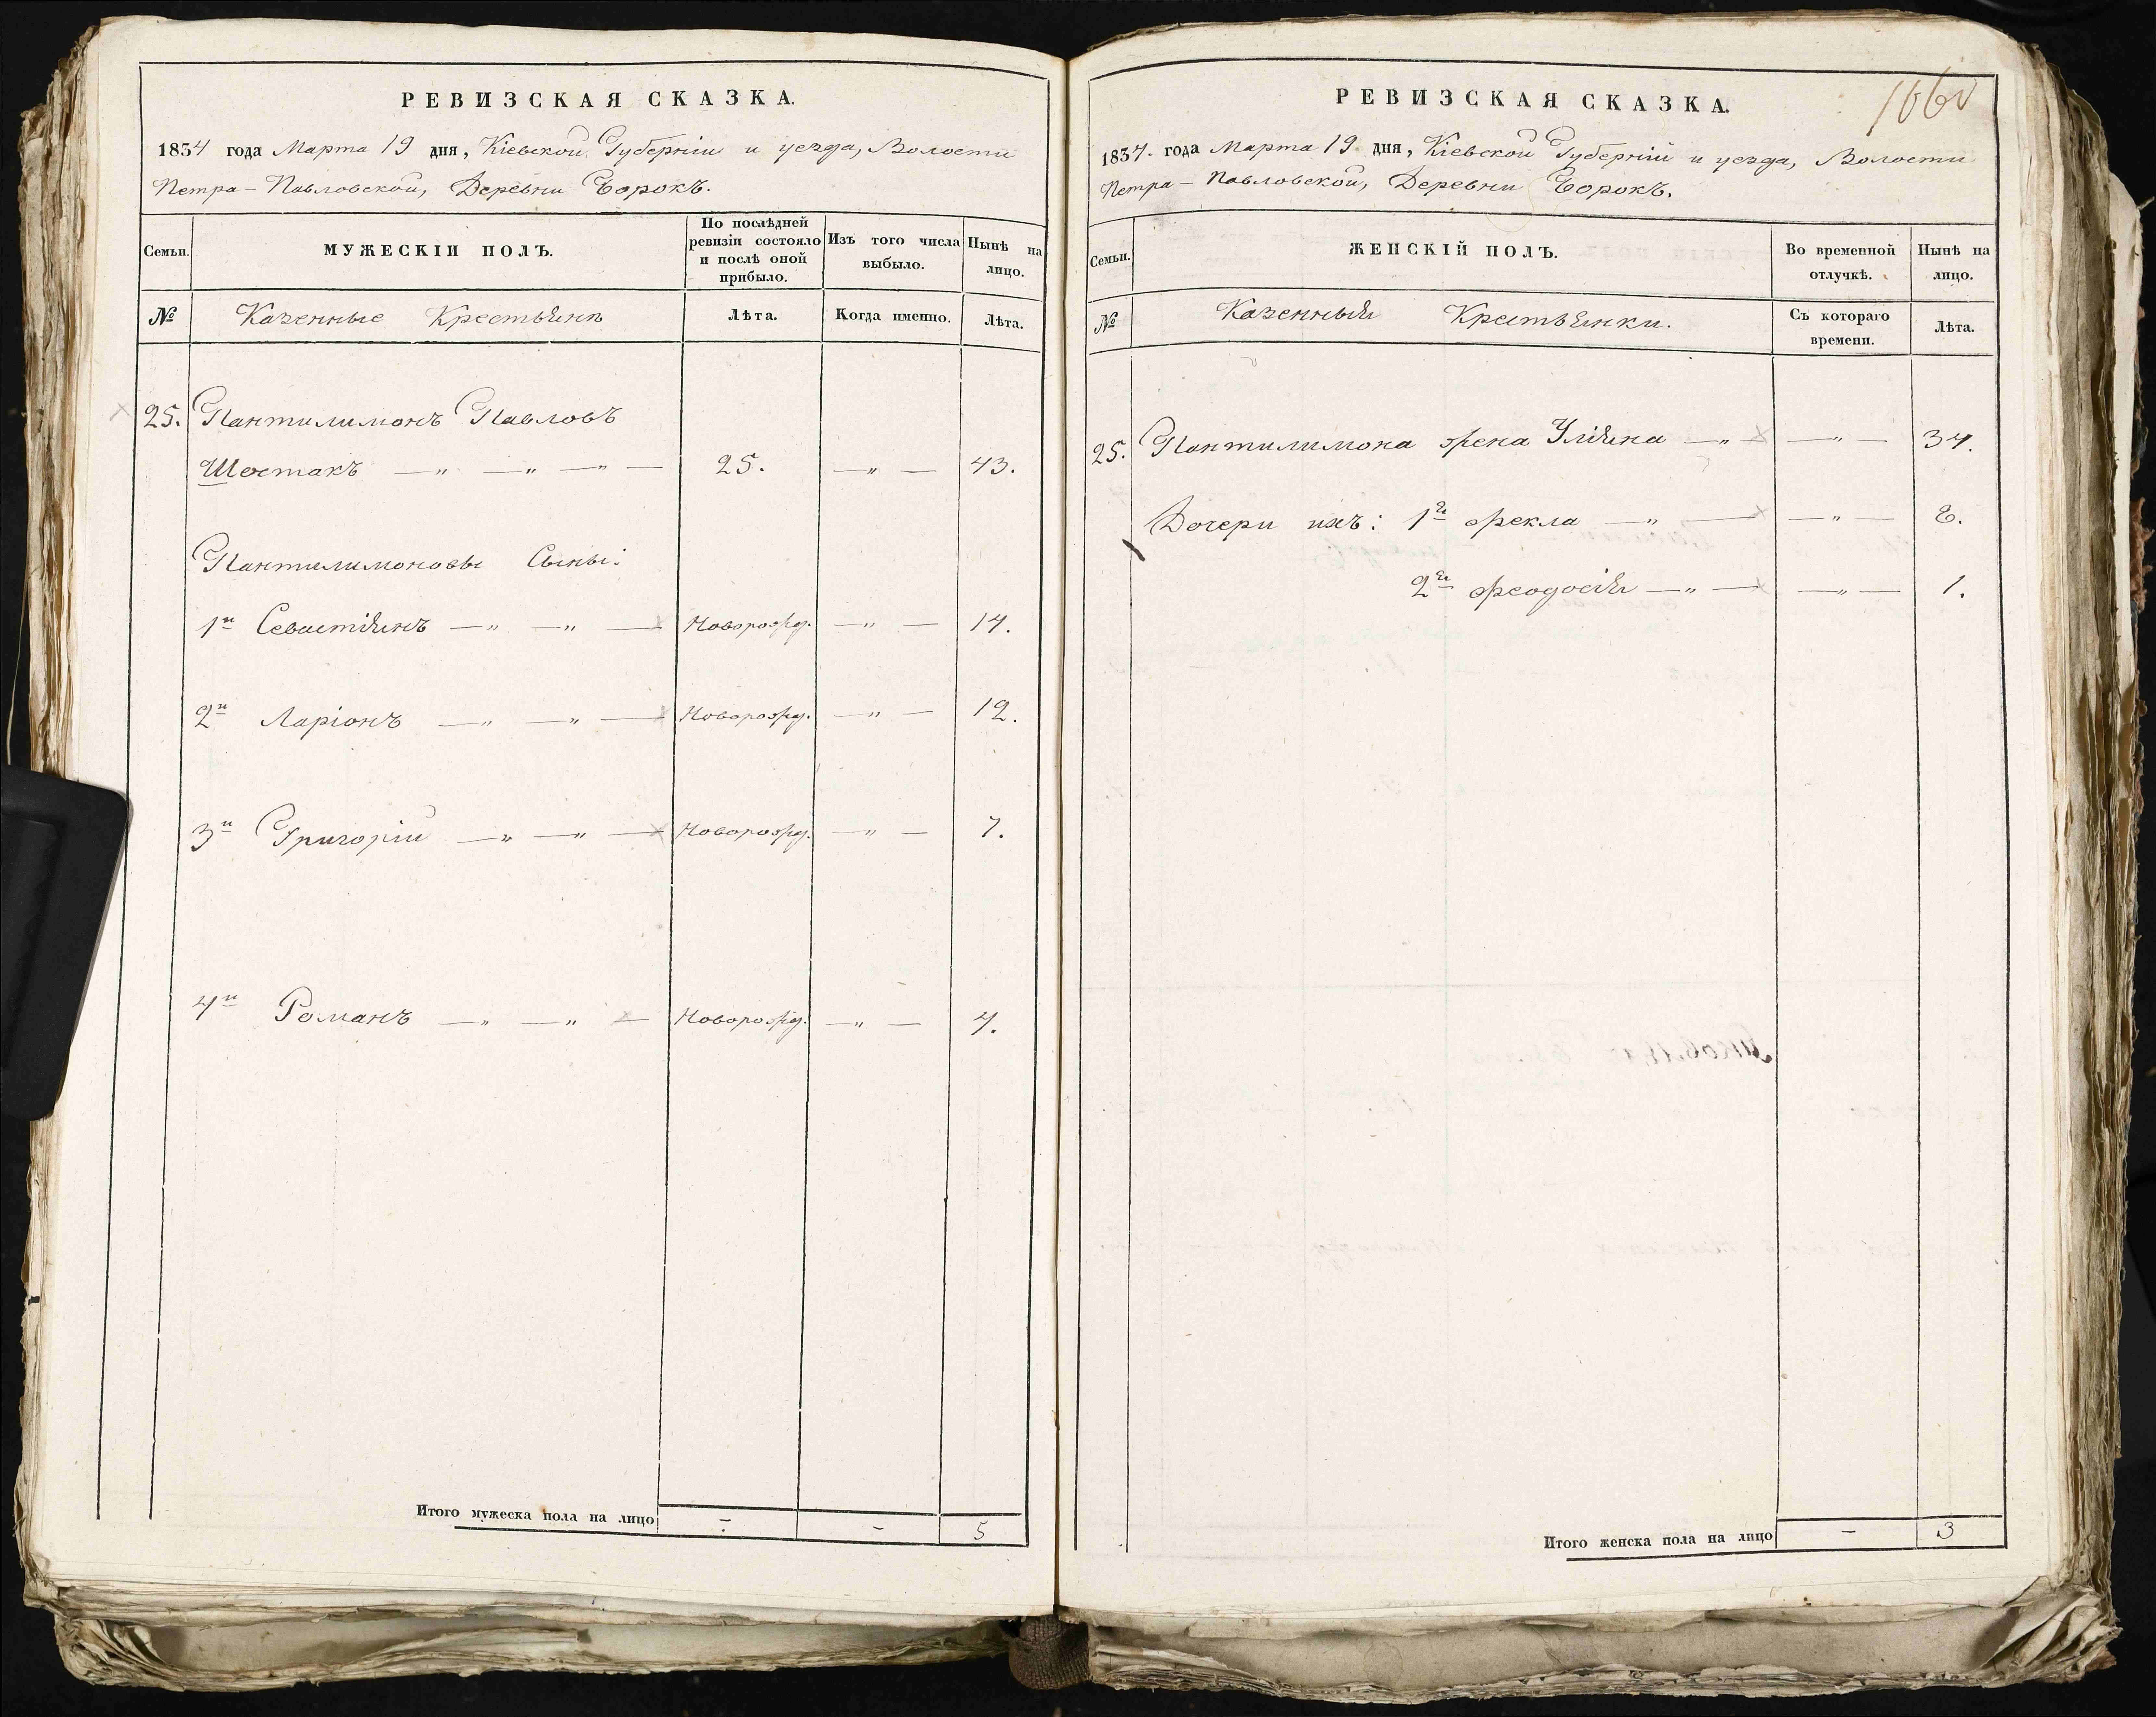 РЕВИЗСКАЯ СКАЗКА.
1834 года Марта 19 дня, Кіевской Губерніи и уезда, Волости
Петра-Павловской, Деревни Борокъ.
Семьи.
МУЖЕСКІИ ПОЛЪ.
По послѣдней ревизіи состояло и послѣ оной прибыло.
Изъ того числа выбыло.
Нынѣ на лицо.
№
Казенные Крестьяне
Лѣта.
Когда именно.
Лѣта.
25. Пантилимонъ Павловъ
Шостакъ — „ — „ — „ — 25. — „ — 43.
Пантилимоновы Сыны:
1й Севастіянъ — „ — „ — Новорожд. — „ — 14.
2й Ларіонъ — „ — „ — Новорожд. — „ — 12.
3й Григорій — „ — „ — Новорожд. — „ — 7.
4й Романъ — „ — „ — Новорожд. — „ — 4.
Итого мужеска пола на лицо - - 5
РЕВИЗСКАЯ СКАЗКА.
1834. года Марта 19. дня, Кіевской Губерніи и уезда, Волости
Петра-Павловской, Деревни Борокъ.
Семьи.
ЖЕНСКІЙ ПОЛЪ.
Во временной отлучкѣ.
Нынѣ на лицо.
№
Казенныя Крестьянки.
Съ котораго времени.
Лѣта.
25. Пантилимона жена Уліяна — „ — — „ — 34.
Дочери ихъ: 1я Фекла — „ — — „ — 8.
2я Феодосія — „ — — „ — 1.
Итого женска пола на лицо - 3